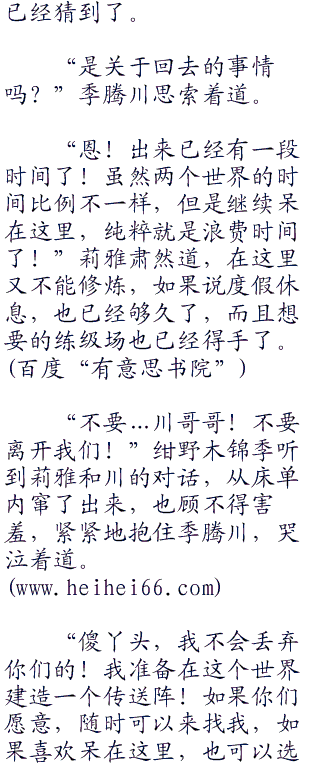 已经猜到了。
“是关于回去的事情
吗？”季腾川思索着道。
“恩！出来已经有一段
时间了！虽然两个世界的时
间比例不一样，但是继续呆
在这里，纯粹就是浪费时间
了！”莉雅肃然道，在这里
又不能修炼，如果说度假休
息，也已经够久了，而且想
要的练级场也已经得手了。
(百度“有意思书院”)
“不要…川哥哥！不要
离开我们！”绀野木锦季听
到莉雅和川的对话，从床单
内窜了出来，也顾不得害
羞，紧紧地抱住季腾川，哭
泣着道。
(www.heihei66.com)
“傻丫头，我不会丢弃
你们的！我准备在这个世界
建造一个传送阵！如果你们
愿意，随时可以来找我，如
果喜欢呆在这里，也可以选